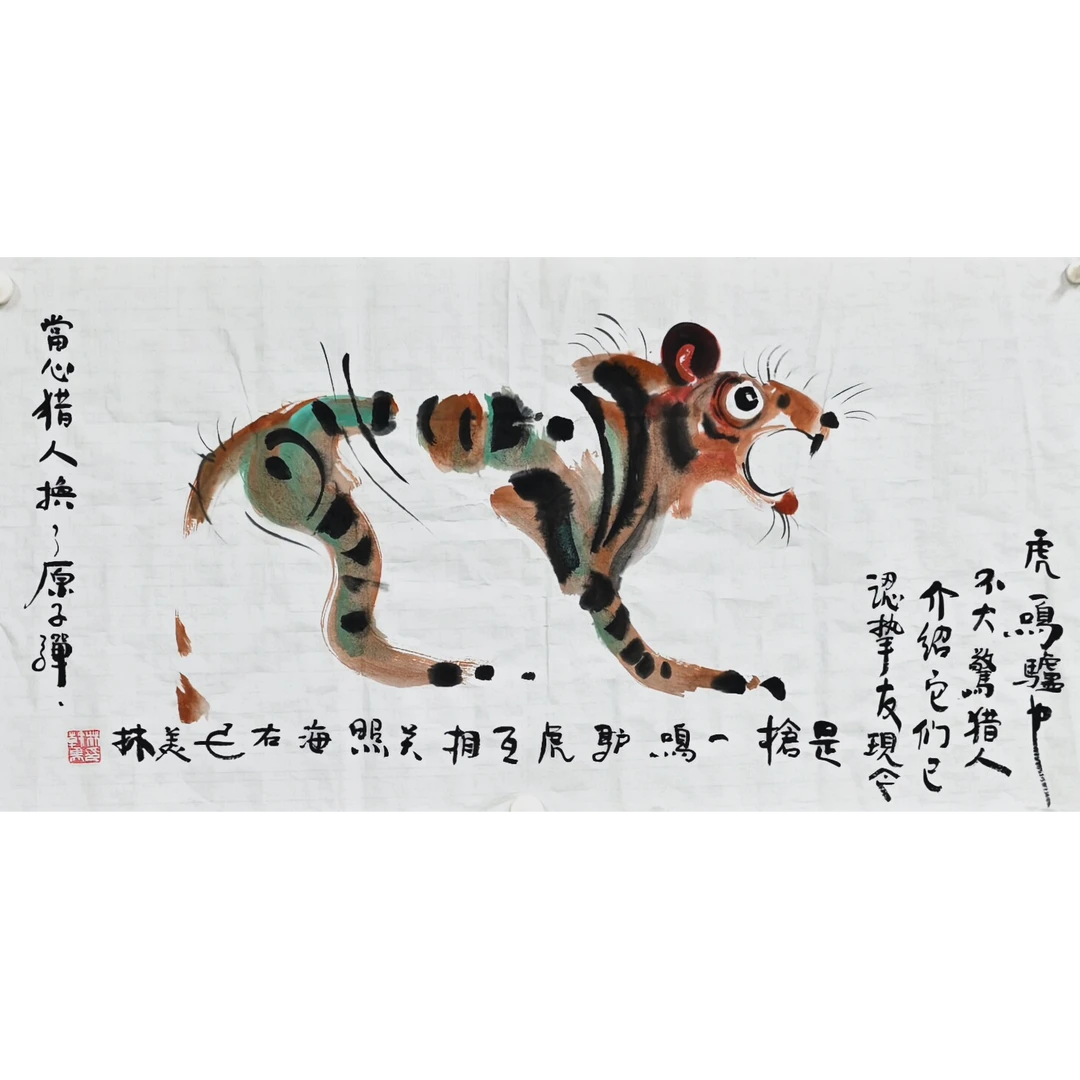 虎鳴驢叫
不大驚猎人
介紹它們已
認摯友現今
是槍一鳴驴虎互相关照海右已美林
當心猎人換了原子彈.